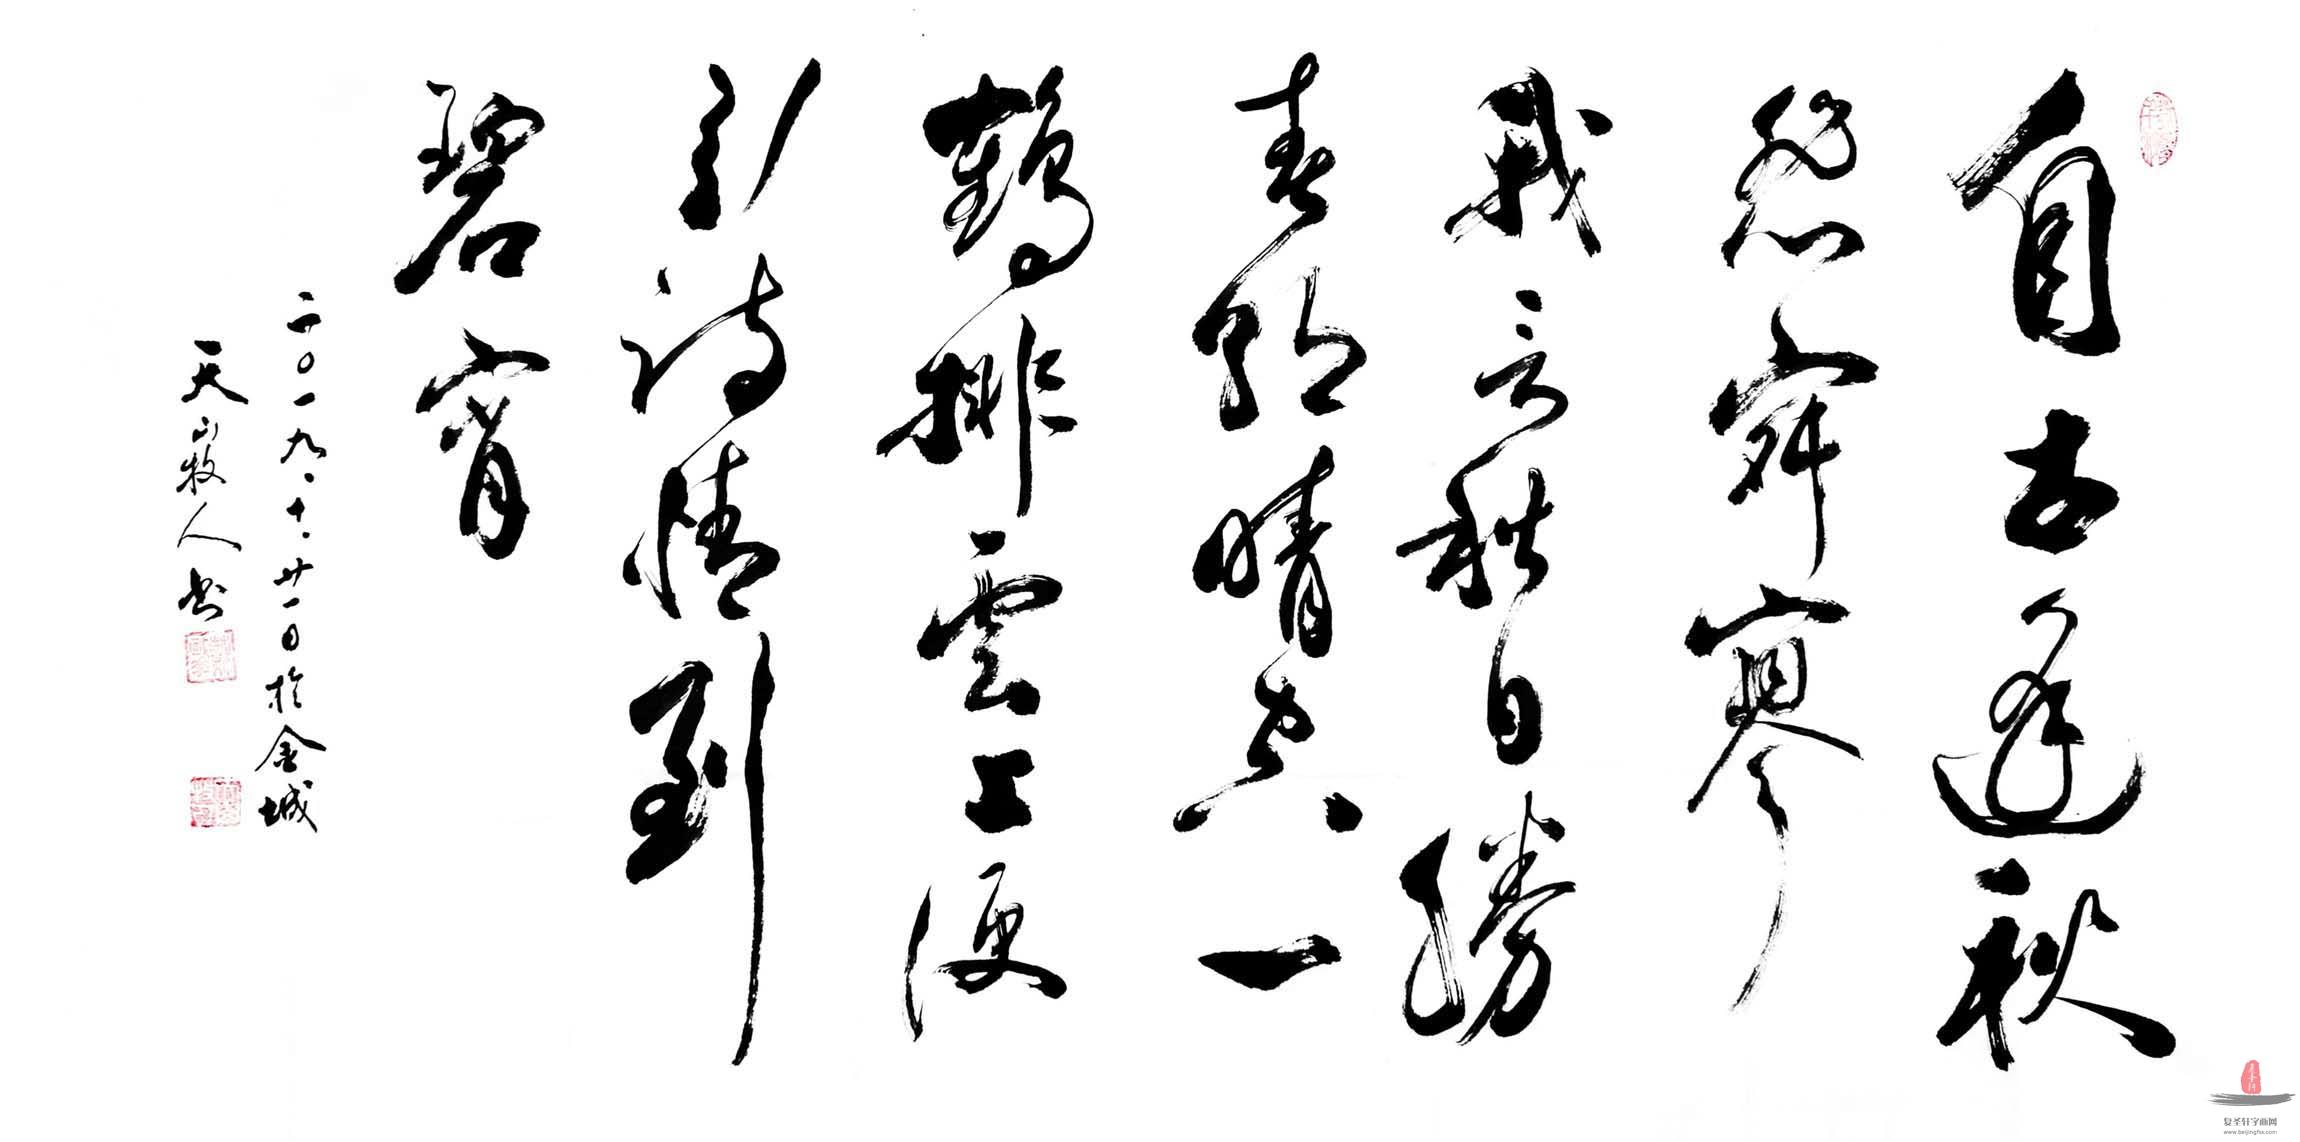 自古逢秋
悲寂寥
我言秋日勝
春朝晴空一
鶴排雲上便
引詩情到
碧宵
二〇一九.十.廿一日於金城
天山牧人书
复圣轩字画网
www.beijingfsx.com